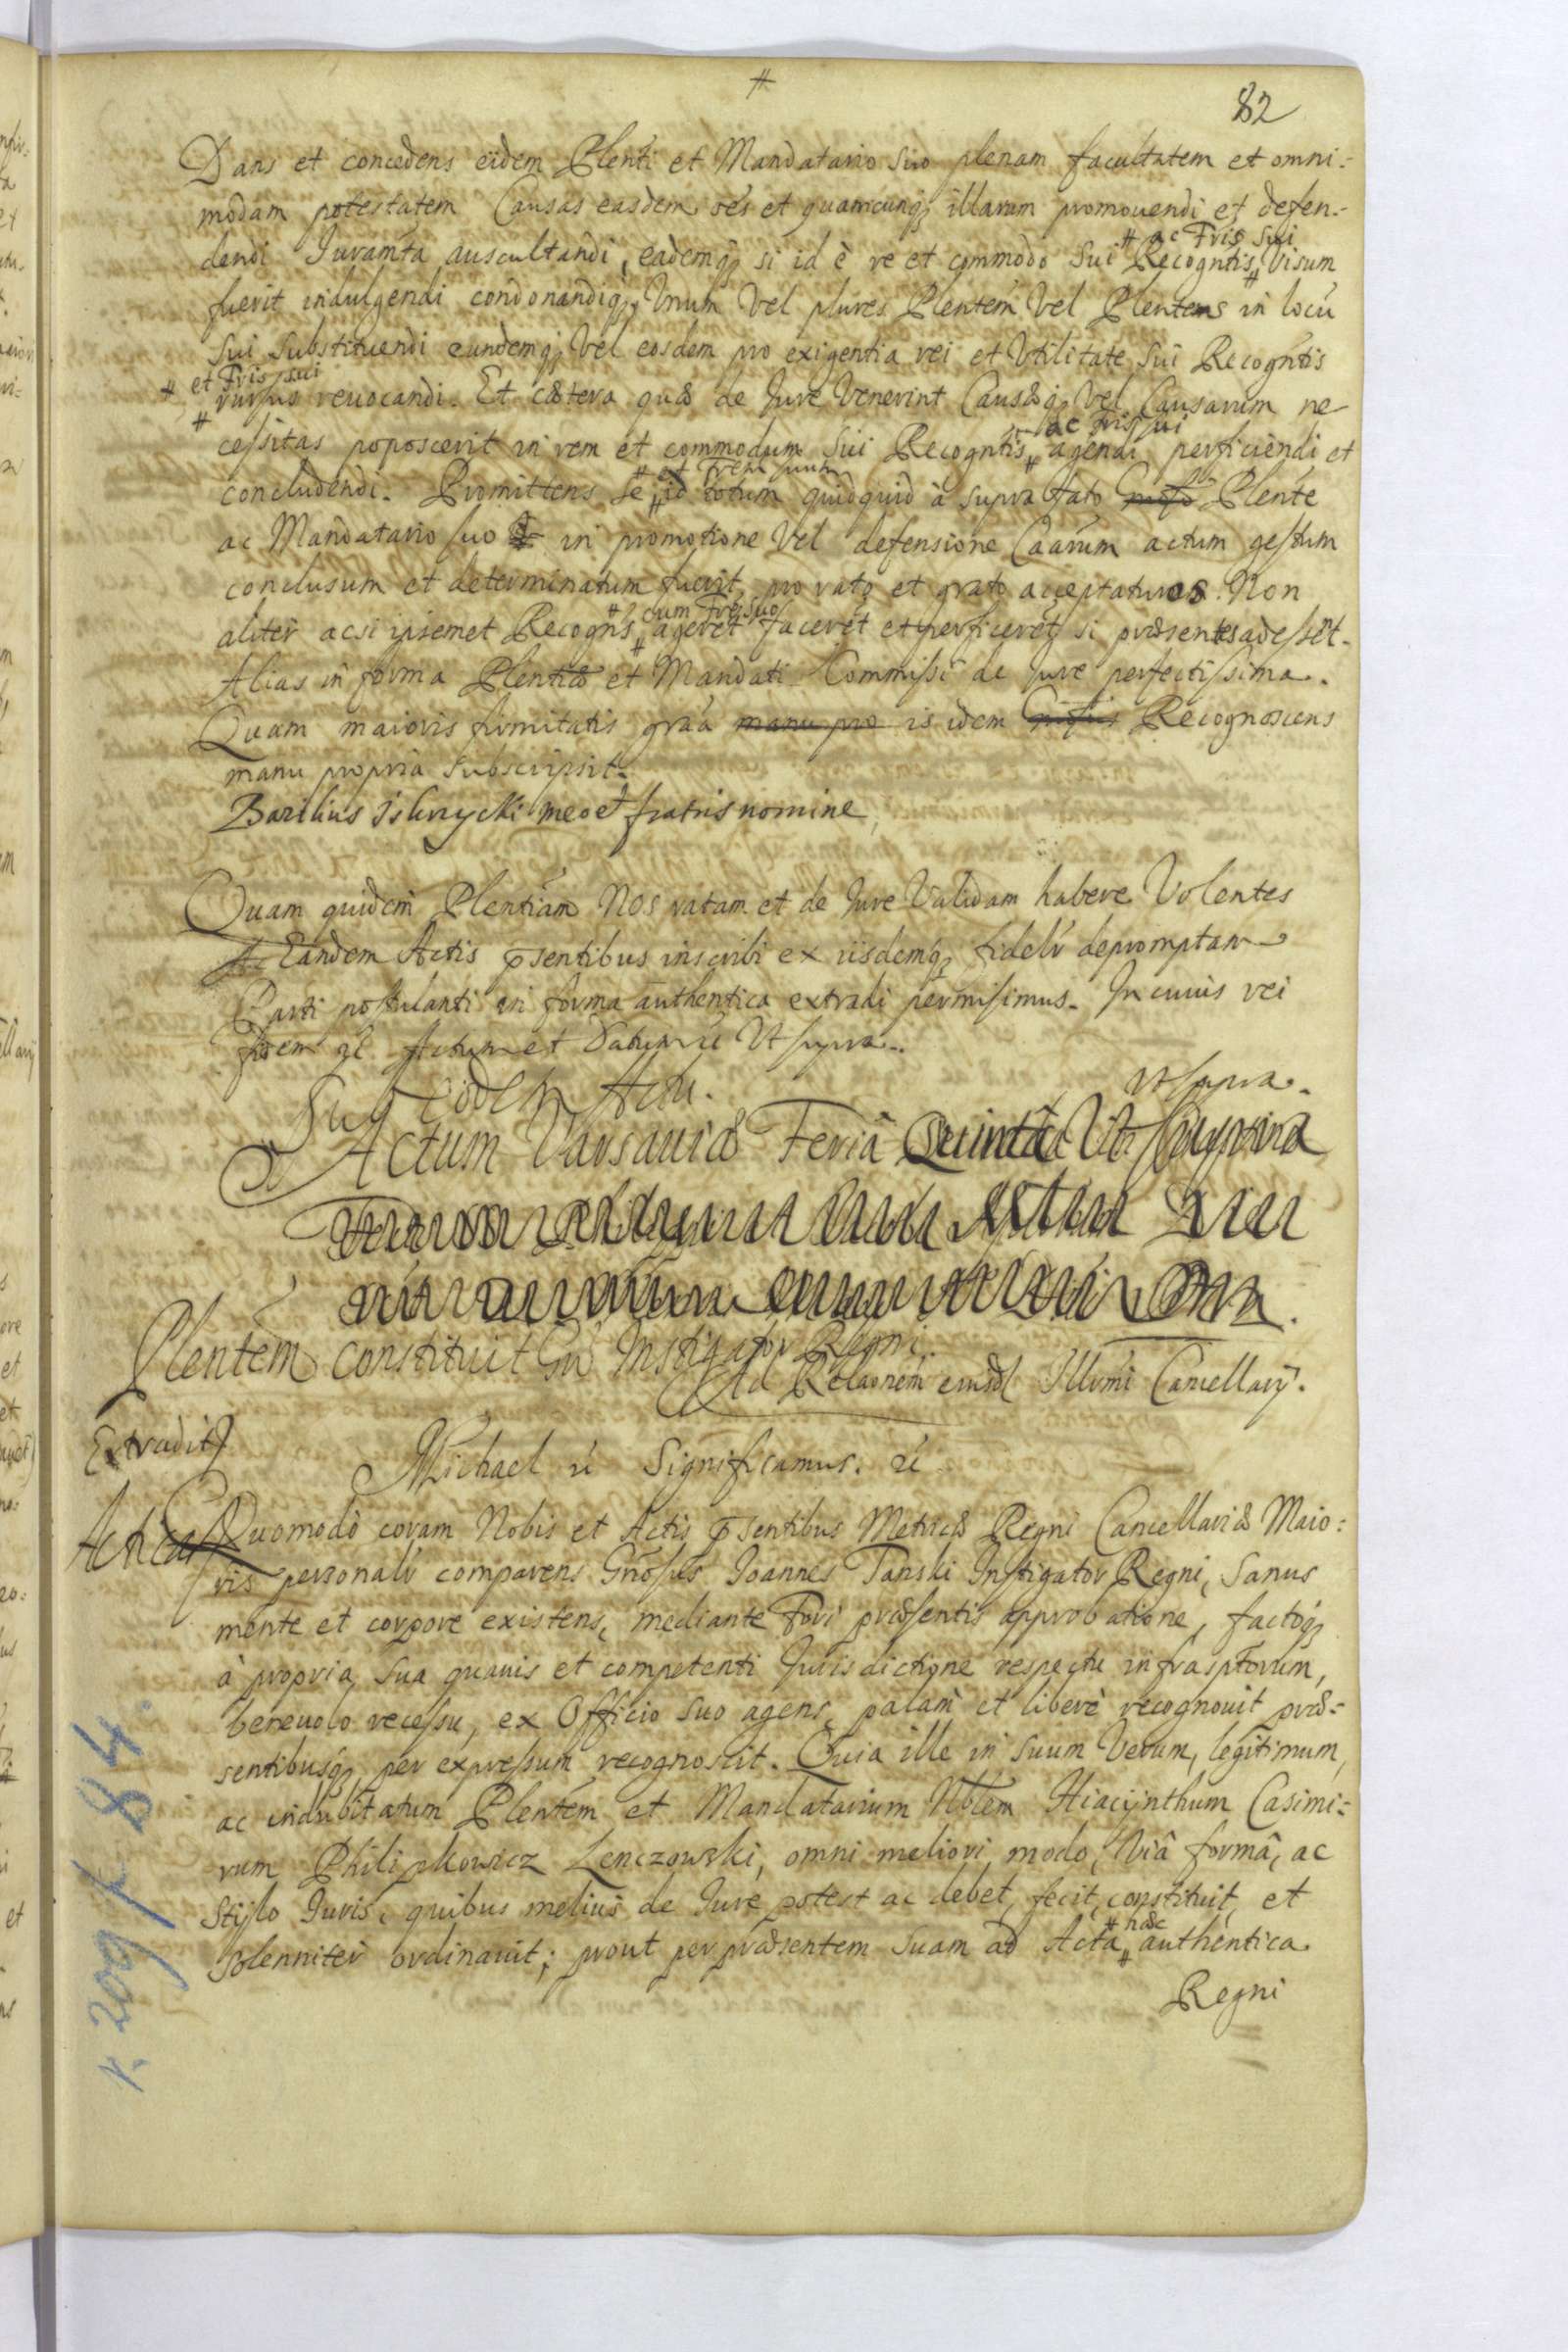 #
82
Dans et concedens eidem Plenti et Mandatario suo plenam facultatem et omni=
modam potestatem Causas easdem oẽs et quamcunq; illarum promouendi et defen=
# ac Fris sui
dendi Juramta auscultandi, eademq; si id è re et commodo sui Recogntis # Visum
fuerit indulgendi condonandiq;, Vnum Vel plures Plentem Vel Plentens in locũ
sui substituendi eundemq; Vel eosdem pro exigentia rei et Vtilitate sui Recogntis
# et Fris sui
# rursus reuocandi. Et cætera quæ de Jure Venerint Causæq; Vel Causarum ne
ac Fris sui
cessitas poposcerit in rem et commodum sui Recogntis # agendi perficiendi et
# et Frem suum
concludendi. Promittens se # id totum quidquid à supra fato Plente
ac Mandatario suo in promotione Vel defensione Caarum actum gestum
conclusum et determinatum fuerit pro rato et grato acceptaturos. Non
# cum Fre suo
aliter acsi ipsemet Recogns # ageret faceret et perficeret si præsentes adessẽt.
Alias in forma Plentiæ et Mandati Commissi de Jure perfectissima.
Quam maioris firmitatis graa manu pro is idem Recognoscens
manu propria subscripsit.
Bazilius Iskrzycki meo et fratris nomine,
Quam quidem Plentiam Nos ratam et de Jure Validam habere Volentes
Eandem Actis p̃sentibus inscribi ex iisdemq; fidelr depromptam
Parti postulanti in forma authentica extradi permisimus. In cuius rei
fidem Actum et Datum Vt supra.
Sub eodem Actu.
Vt supra.
Actum Varsauiæ Feriâ Quintâ Vt supra
Plentem constituit Gn̄ Instigator Regni.
Ad Relaonem eiusd Illrmi Cancellarÿ.
Extradit
Michael Significamus.
Acticat
Quomodo coram Nobis et Actis p̃sentibus Metricæ Regni Cancellariæ Maio=
ris personalr comparens Gnosus Joannes Tanski Instigator Regni, sanus
mente et corpore existens, mediante Fori præsentis approbatione, factoq;
à propria sua quauis et competenti Jurisdictione respectu infrasptorum,
beneuolo recessu, ex Officio suo agens, palam et liberè recognouit præ=
sentibusq; per expressum recognoscit. Quia ille in suum Verum, legitimum,
ac indubitatum Plentem et Mandatarium Nblem Hiacÿnthum Casimi=
rum Philipkowicz Lenczowski, omni meliori modo, Viâ formâ, ac
Stÿlo Juris, quibus melius de Jure potest ac debet, fecit, constituit, et
# hæc
Solenniter ordinauit; prout per præsentem suam ad Acta # authentica
Regni
r. 209 f 84.